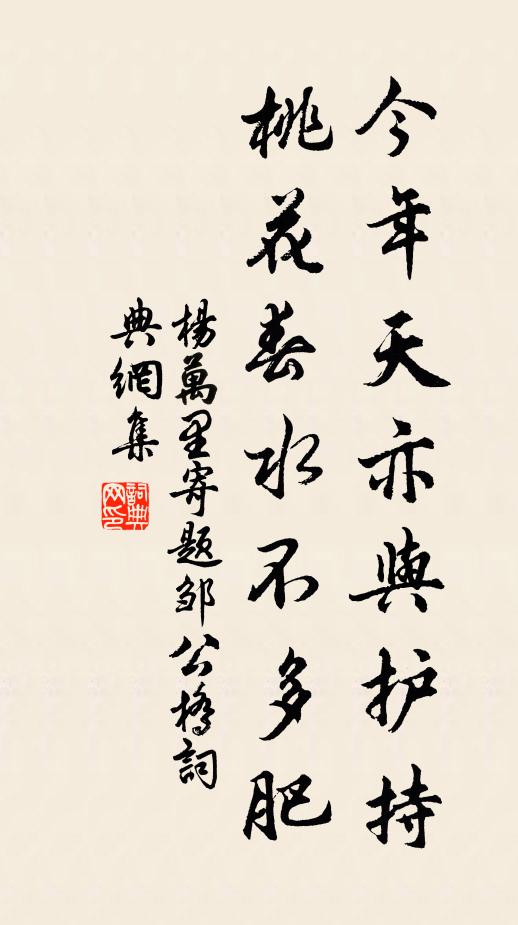 今年天亦與护持
桃花春水不多肥
楊萬里寄题邹公橋詞
典網集
詞典
网印